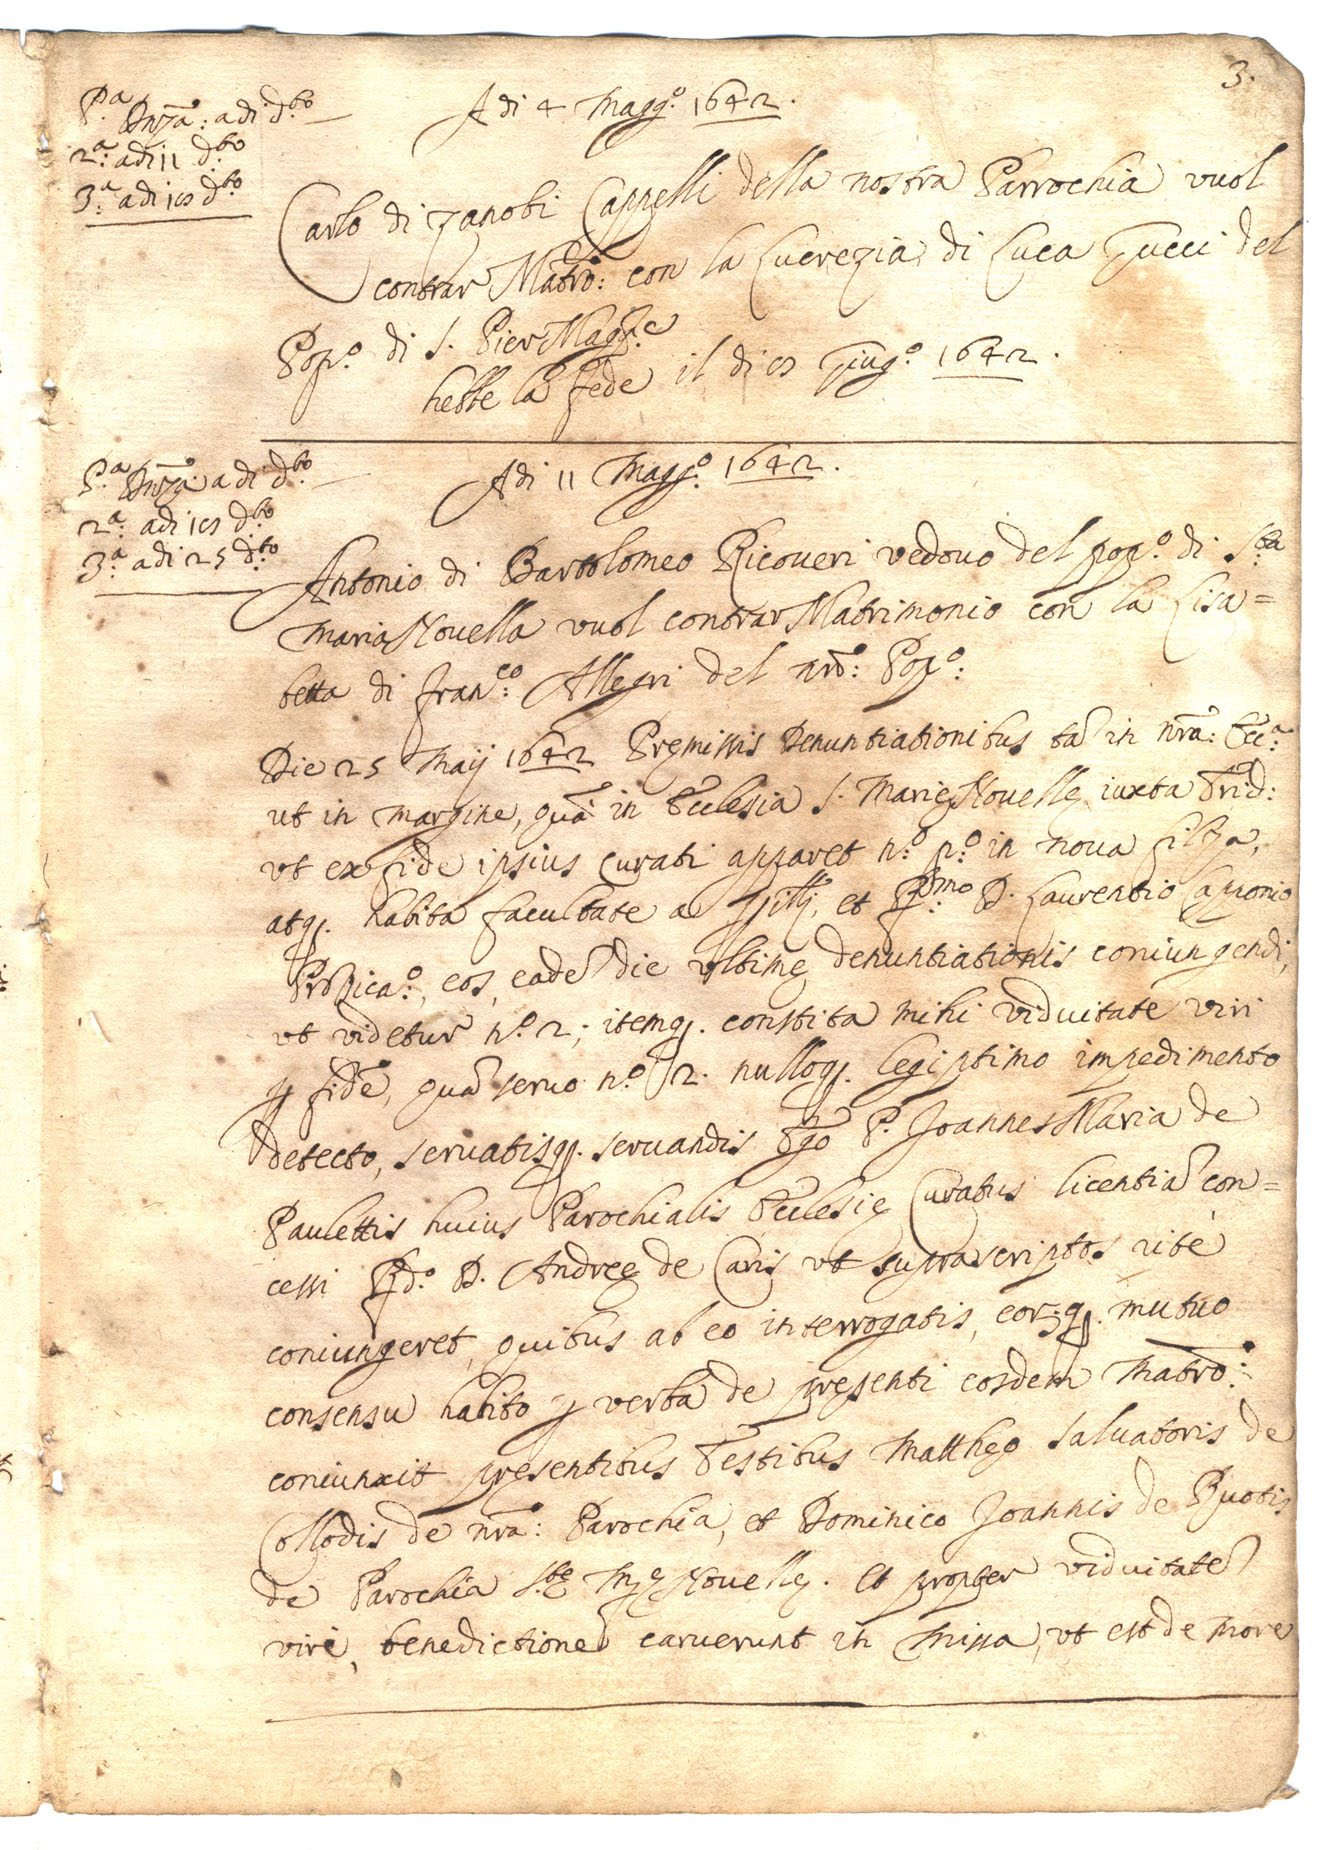 3.
P.a Dnza: adi d.to
2.a adi 11 d.to
3.a adi 18 d.to
Adi 4 Magg.o 1642.
Carlo di Zanobi Cappelli della nostra Parrochia vuol
contrar Matro: con la Lucrezia di Luca Tucci del
Pop.o di S. Pier Magg.e
hebbe la fede il di 8 Giug.o 1642.
P.a Dnza adi d.to
2.a adi 18 d.to
3.a adi 25 d.to
Adi 11 Magg.o 1642.
Antonio di Bartolomeo Ricoueri vedouo del pop.o di S.ta
Maria Nouella vuol contrar Matrimonio con la Lisa=
betta di Fran.co Allegri del nro: Pop.o:
Die 25 Maij 1642 Premissis Denuntiationibus tã in nrã: Ecc.a
ut in margine, quã in Ecclesia S. Marię Nouellę iuxta Trid:
vt ex fide ipsius Curati apparet n.o p.o in noua filza,
atq. habita facultate a et R.mo D. Laurentio Capponio
eos eadẽ die vltimę denuntiationis coniungendi,
vt videtur n.o 2; itemq. constita mihi viduitate viri
p fidẽ, quã seruo n.o 2. nulloq. legiptimo impedimento
detecto, seruatisq. seruandis Ego P. Joannes Maria de
Paulettis huius Parochialis Ecclesię Curatus licentiã con=
cessi R.do D. Andreę de Caris vt suprascriptos ritè
coniungeret, quibus ab eo interrogatis, eorq. mutuo
consensu habito p verba de presenti eosdem Matro:
coniunxit presentibus Testibus Matthęo Saluatoris de
Collodis de nrã: Parochia, et Dominico Joannis de Puotis
de Parochia S.tę M.ę Nouellę. Et propter viduitatẽ
viri, benedictionẽ caruerunt in missa, vt est de more